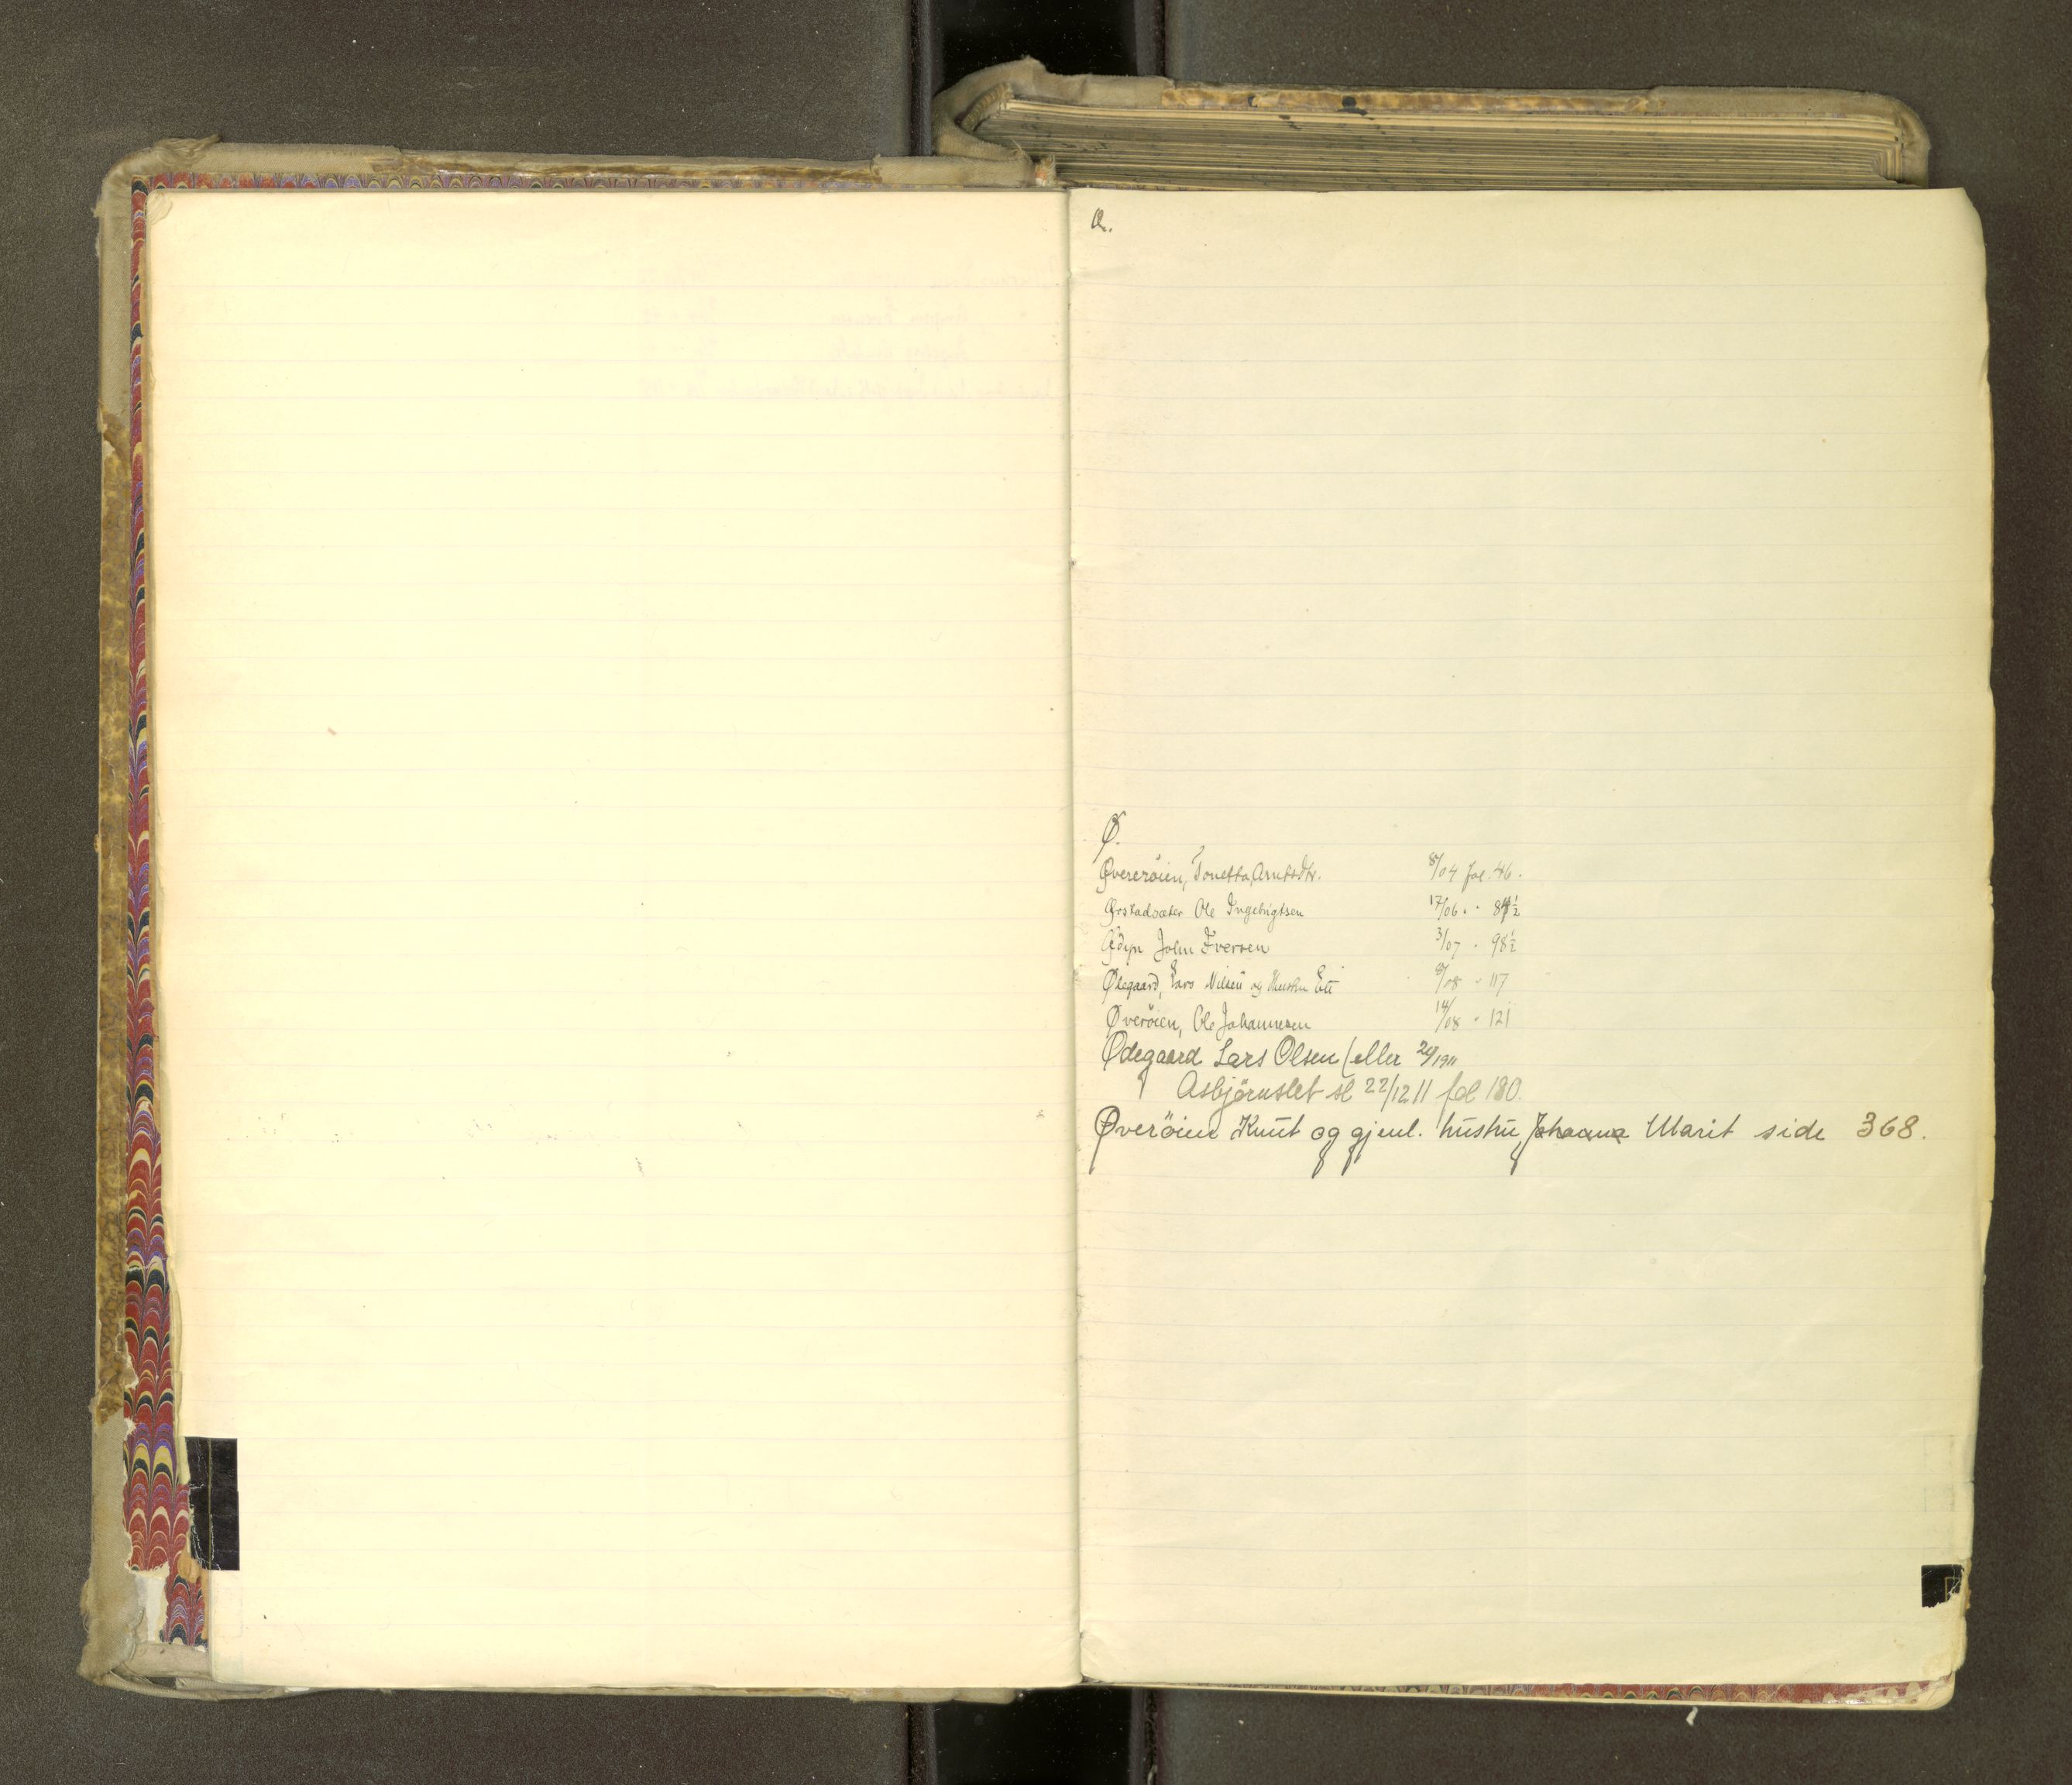 Æ.
Ø.
Øverøien, Tonetta Arntsdtr. 8/04 fol. 46.
Ørstadsæter Ole Ingebrigtsen 17/06. "
John Iversen 3/07 " 98½
Ødegaard, Lars Nilsen og Hustru 8/08 " 117
Øverøien, Ole Johannesen 14/08 " 121
Ødegaard Lars Olsen (eller 24/1911
Asbjørnslet sl 22/12 11 fol 180.
Øverøien Knut og gjenl. hustru Johanna Marit side 368.